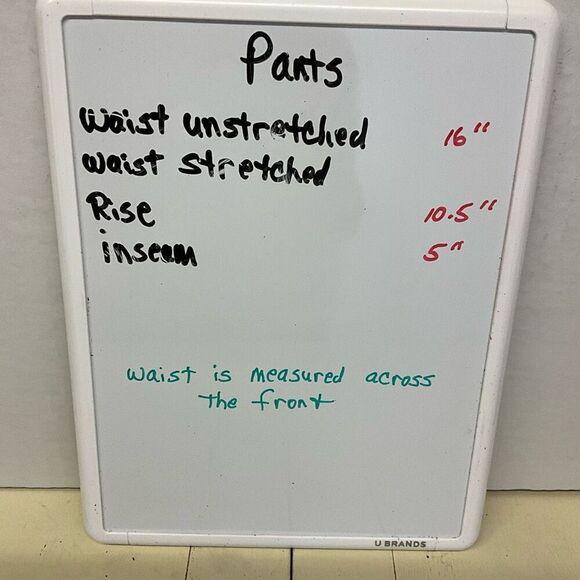 Pants
waist unstretched 16"
waist stretched
Rise 10.5"
inseam 5"
waist is measured across
the front
U BRANDS